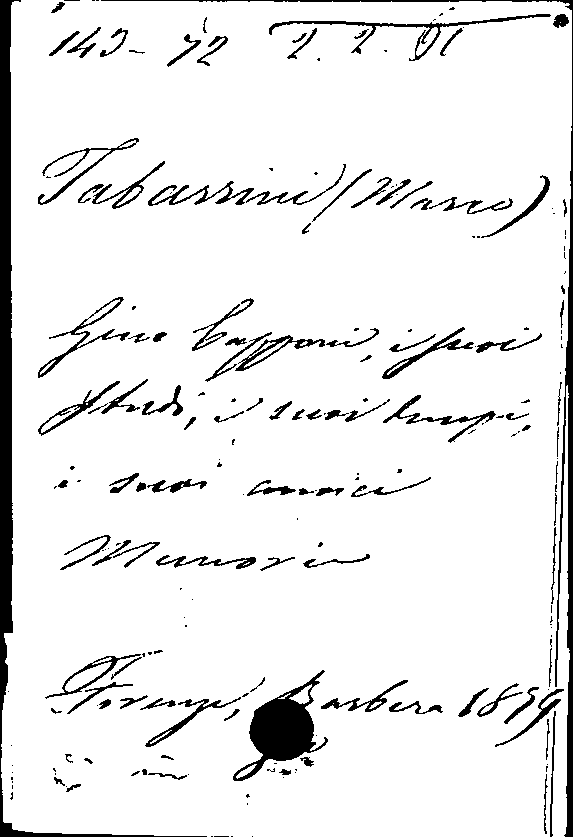 143-72 2. 2. 91
Tabarrini (Marco)
Gino Capponi, i suoi
studi, i suoi tempi,
i suoi amici
Memorie
Firenze, Barbera 1879
in